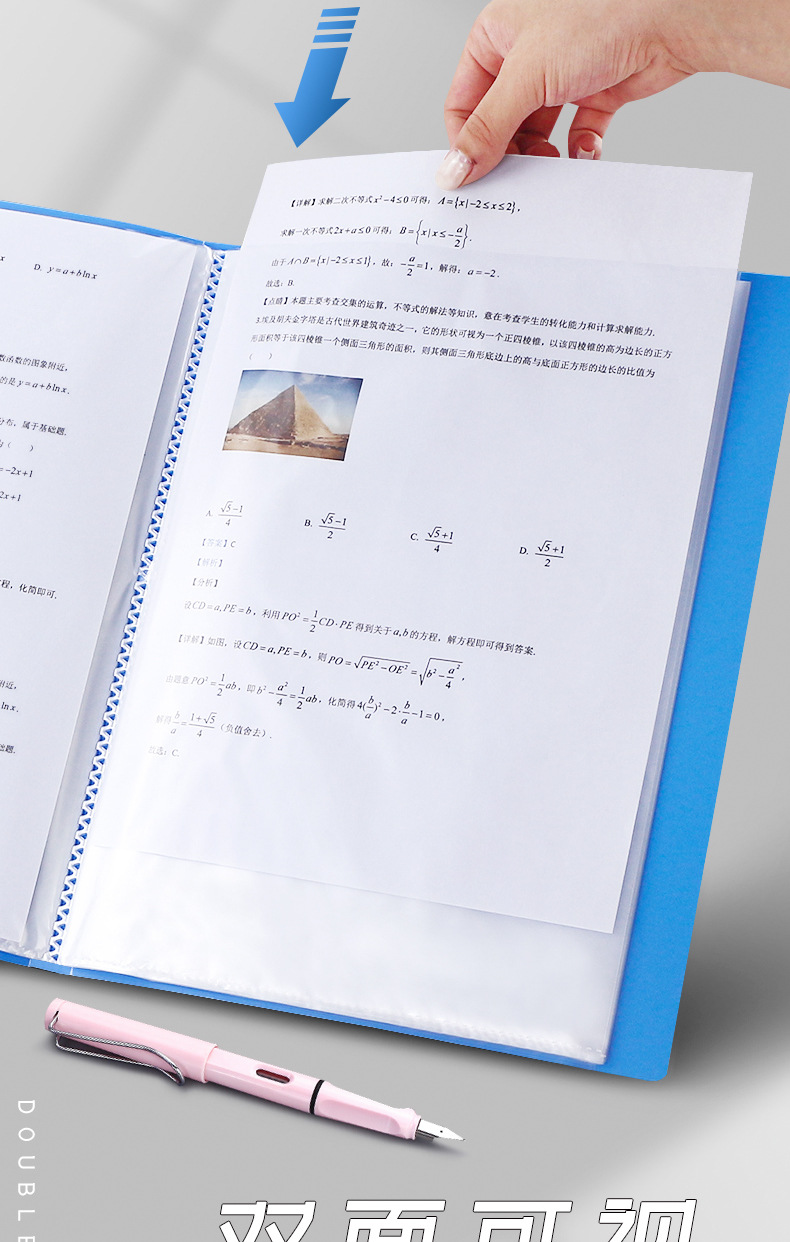 x
D. y=a+blnx
数函数的图象附近，
的是y=a+blnx.
分布，属于基础题.
为（　　）
=-2x+1
2x+1
程，化简即可.
附近，
lnx.
础题.
【详解】求解二次不等式x²-4≤0可得：A={x|-2≤x≤2}，
求解一次不等式2x+a≤0可得：B={x|x≤-a/2}.
由于A∩B={x|-2≤x≤1}，故：-a/2=1，解得：a=-2.
故选：B.
【点睛】本题主要考查交集的运算，不等式的解法等知识，意在考查学生的转化能力和计算求解能力.
3.埃及胡夫金字塔是古代世界建筑奇迹之一，它的形状可视为一个正四棱锥，以该四棱锥的高为边长的正方
形面积等于该四棱锥一个侧面三角形的面积，则其侧面三角形底边上的高与底面正方形的边长的比值为
（　　）
A. (√5-1)/4 B. (√5-1)/2 C. (√5+1)/4 D. (√5+1)/2
【答案】C
【解析】
【分析】
设CD=a,PE=b，利用PO²=1/2CD·PE得到关于a,b的方程，解方程即可得到答案.
【详解】如图，设CD=a,PE=b，则PO=√(PE²-OE²)=√(b²-a²/4)，
由题意PO²=1/2ab，即b²-a²/4=1/2ab，化简得4(b/a)²-2·b/a-1=0，
解得b/a=(1+√5)/4（负值舍去）.
故选：C.
DOUBLE
双面可视